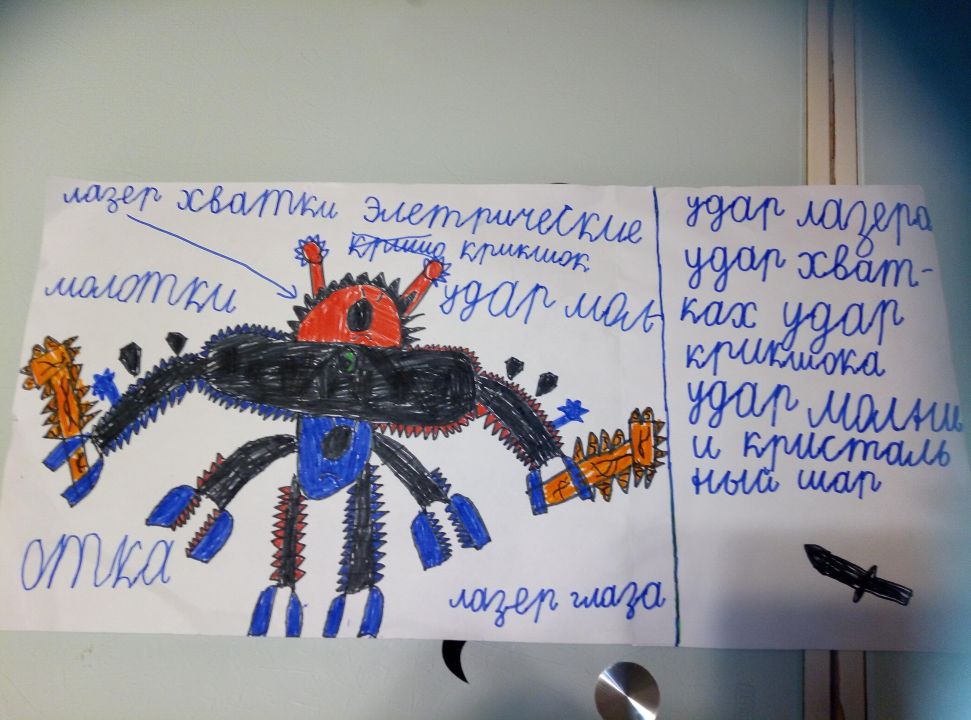 лазер хватки элетрические
криша крикшок
молотки
удар мол
отка
лазер глаза
удар лазера
удар хват-
ках удар
крикшока
удар молни
и кристаль
ный шар